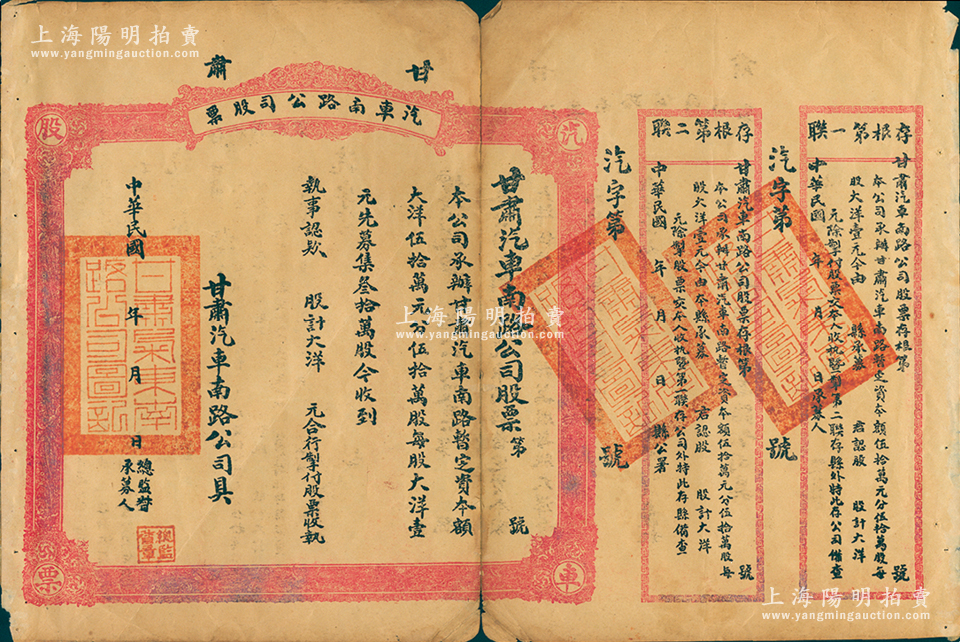 上海陽明拍賣
www.yangmingauction.com
甘肅
汽車南路公司股票
汽
股
車
票
甘肅汽車南路公司股票第 號
本公司承辦甘肅汽車南路暫定資本額
大洋伍拾萬元分伍拾萬股每股大洋壹
元先募集叁拾萬股今收到
執事認欵 股計大洋 元合行掣付股票收執
甘肅汽車南路公司具
中華民國 年 月 日
總監督
承募人
汽字第 號
存根第二聯
甘肅汽車南路公司股票存根第 號
本公司承辦甘肅汽車南路暫定資本額伍拾萬元分伍拾萬股每
股大洋壹元今由本縣承募 君認股 股計大洋
元除掣股票交本人收執暨第一聯存公司外特此存縣備查
中華民國 年 月 日 縣公署
汽字第 號
存根第一聯
甘肅汽車南路公司股票存根第 號
本公司承辦甘肅汽車南路暫定資本額伍拾萬元分伍拾萬股每
股大洋壹元今由 縣承募 君認股 股計大洋
元除掣付股票交本人收執暨掣第二聯存縣外特此存公司備查
中華民國 年 月 日承募人
上海陽明拍賣
www.yangmingauction.com
上海陽明拍賣
www.yangmingauction.com